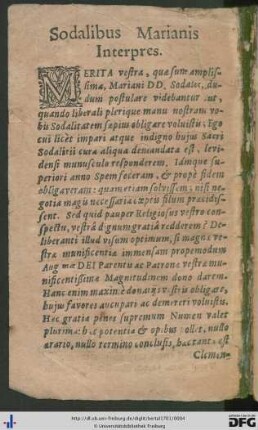 Sodalibus Marianis
Interpres.
MERITA vestra, quæ sunt amplis-
sima, Mariani DD. Sodales, du-
dum postulare videbantur, ut,
quando liberali plerique manu nostram vo-
bis Sodalitatem sæpius obligare voluistis: Ego
cui licèt impari atque indigno hujus Sacri
Sodalitii cura aliqua demandata est, levi-
densi munusculo responderem. Idmque su-
periori anno Spem feceram, & propè fidem
obligaveram: quam etiam solvissem, nisi ne-
gotia magis necessaria cæptis filum præscidis-
sent. Sed quid pauper Religiosus vestro con-
spectu, vestrâ dignum gratiâ redderem? De-
liberanti illud visum optimum, si magnæ ve-
stræ munificentiæ immensam propemodum
Augustæ DEI Parentis ac Patronæ vestræ mu-
nificentissimæ Magnitudinem dono darem.
Hanc enim maximè donatam vestris obligare,
hujus favores aucupari ac demereri voluistis.
Hæc gratiâ plures supremum Numen valet
plurimum: hæc potentia & opibus pollet, nullo
ærario, nullo termino conclusis, hæc tanta est
Clemen-
http://dl.ub.uni-freiburg.de/diglit/bertal1701/0004
© Universitätsbibliothek Freiburg
DFG